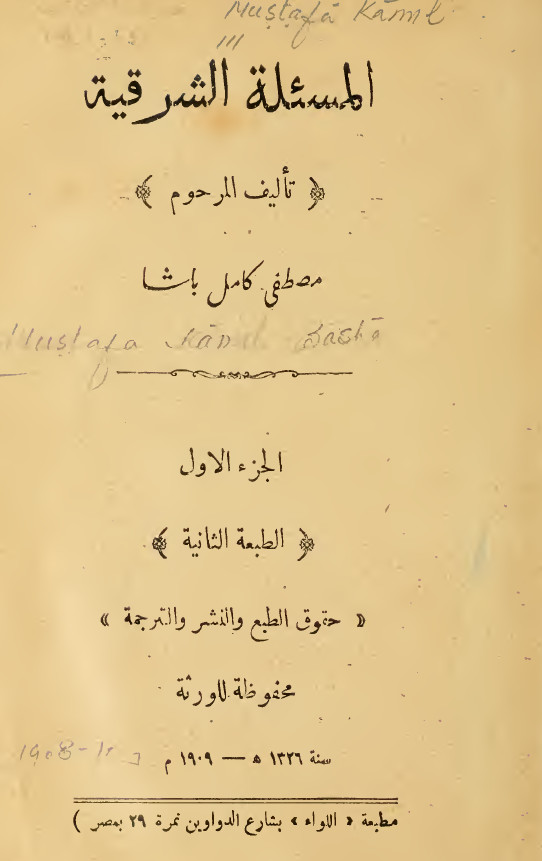 Mustafā Kāmil
المسئلة الشرقية
﴿ تأليف المرحوم ﴾
مصطفى كامل باشا
Mustafa Kāmil Bāshā
الجزء الاول
﴿ الطبعة الثانية ﴾
« حقوق الطبع والنشر والترجمة »
محفوظة للورثة
سنة ١٣٢٦ ه — ١٩٠٩ م
1908-
مطبعة « اللواء » بشارع الدواوين نمرة ٢٩ بمصر )